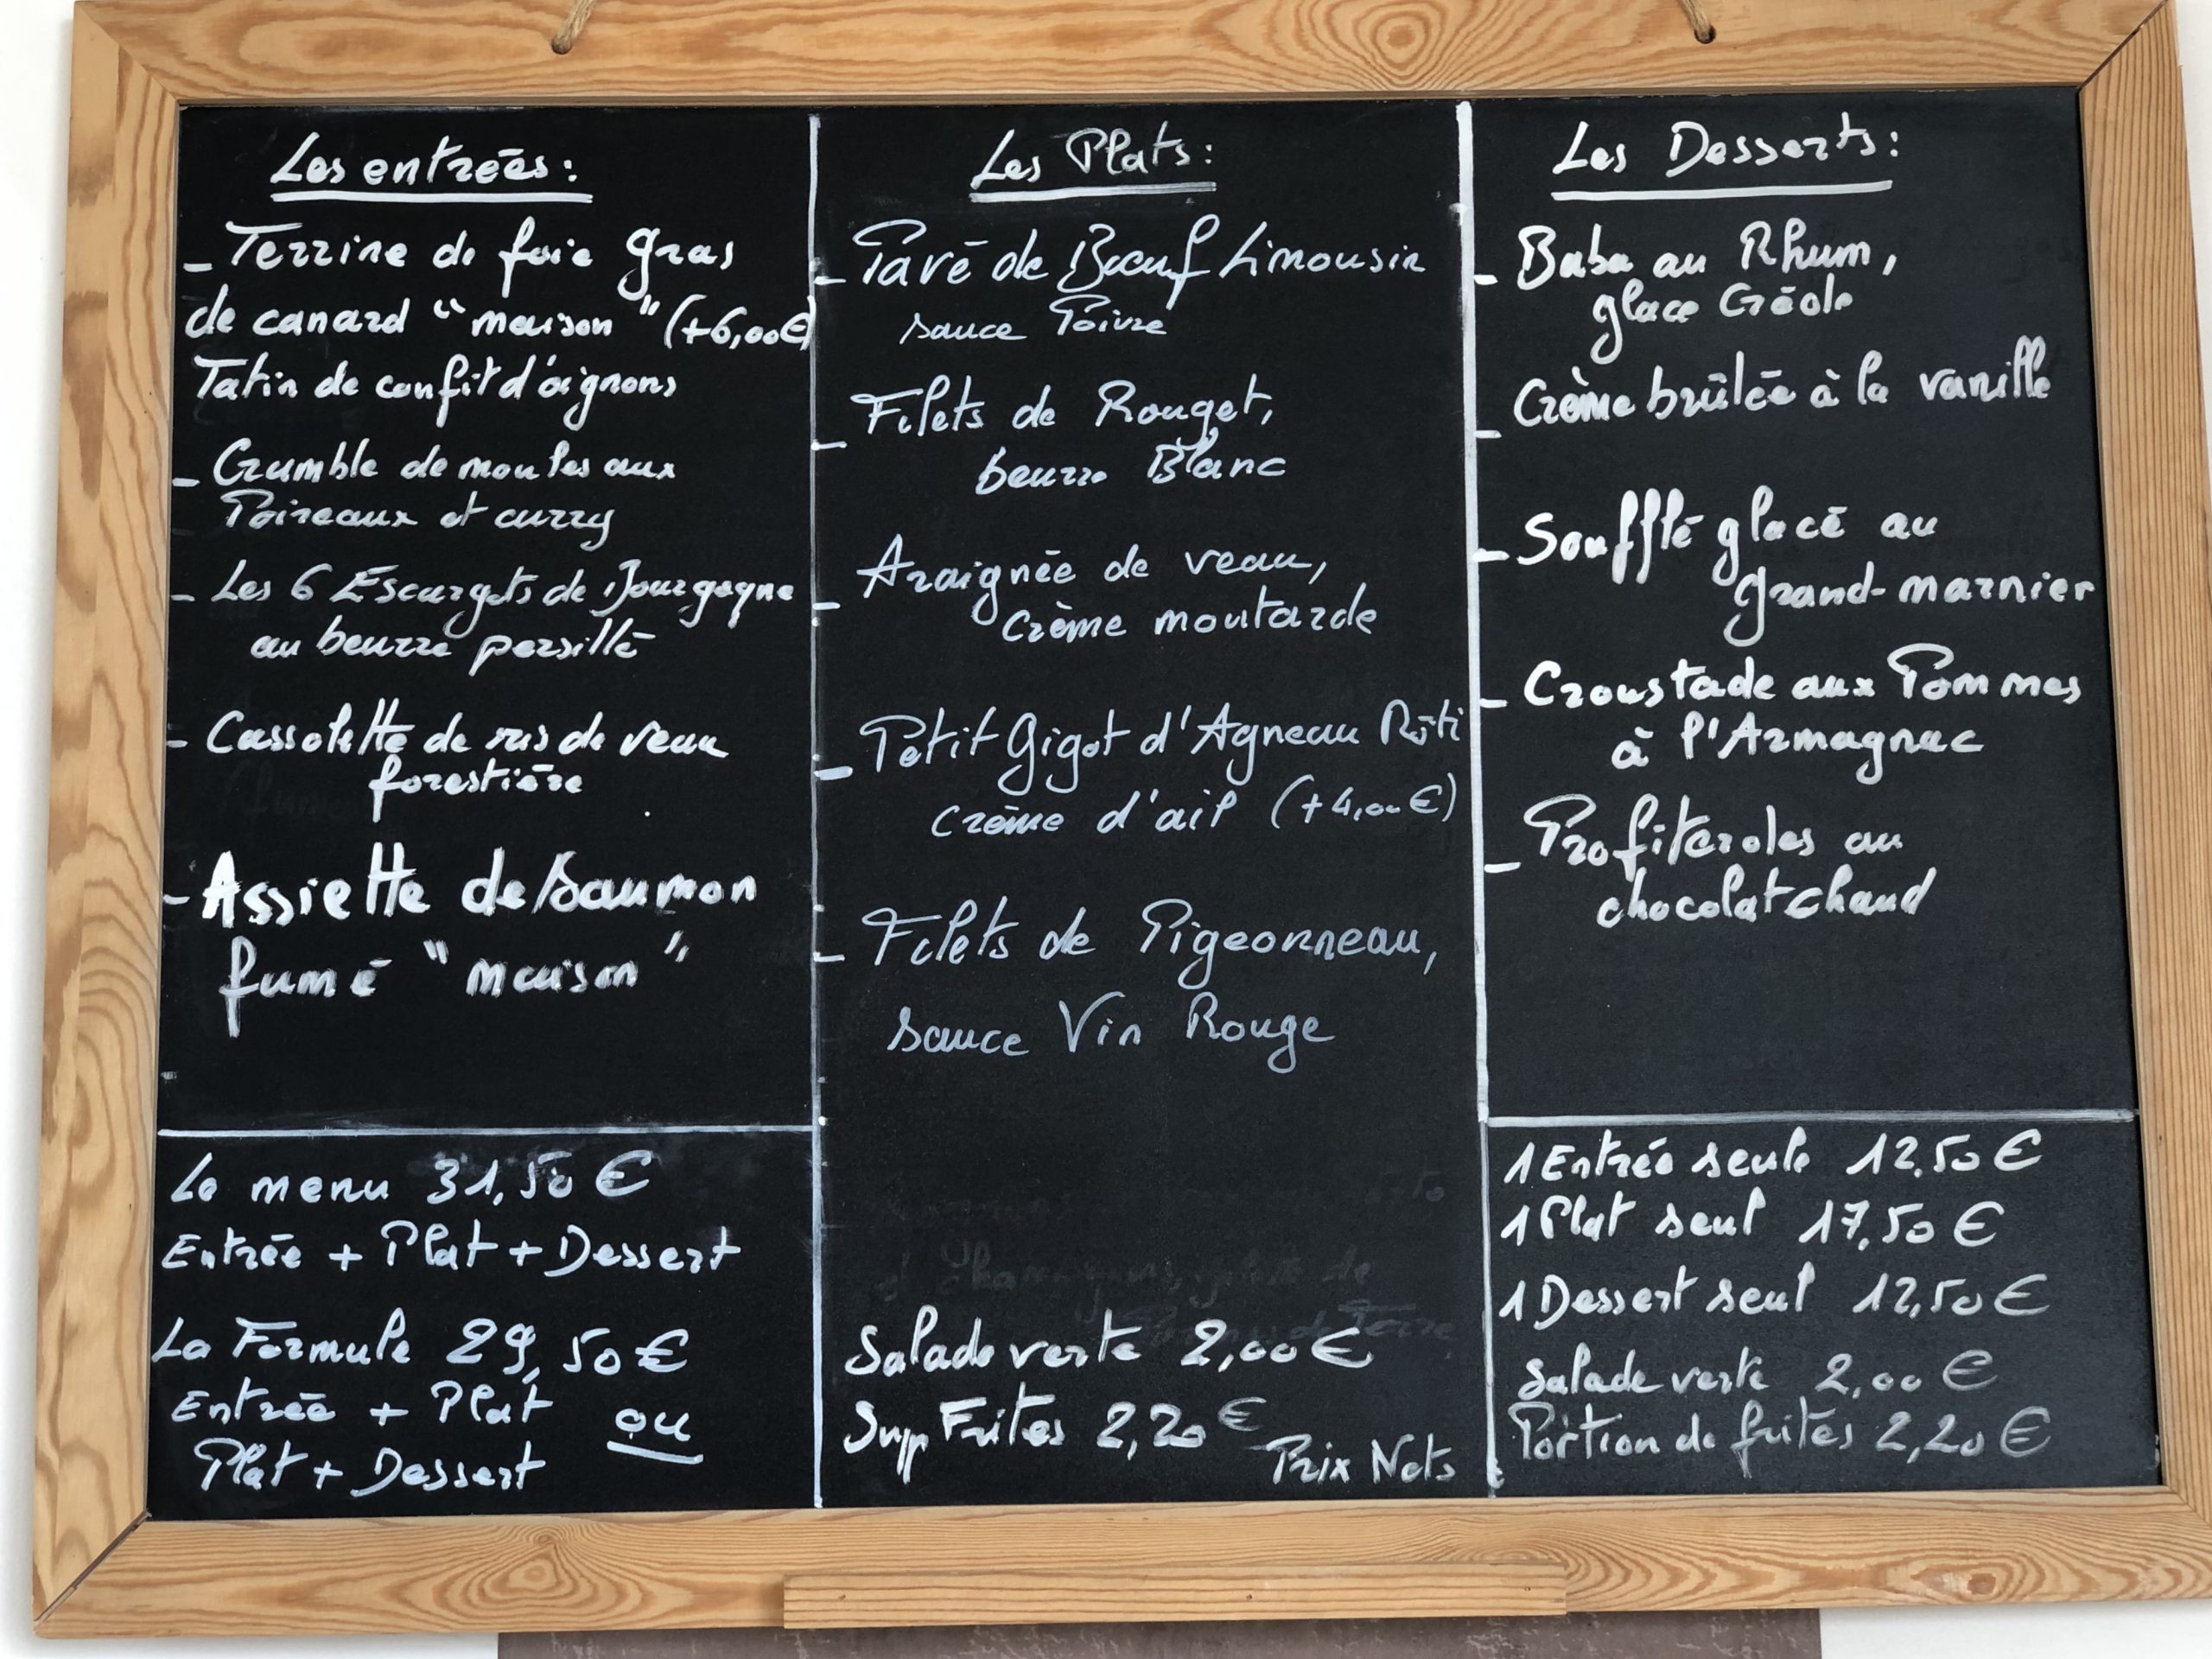 Les entrées :
- Terrine de foie gras
de canard "maison" (+6,00€)
Tatin de confit d'oignons
- Crumble de moules aux
Poireaux et curry
- Les 6 Escargots de Bourgogne
au beurre persillé
- Cassolette de ris de veau
forestière
- Assiette de saumon
fumé "maison"
Le menu 31,50 €
Entrée + Plat + Dessert
La Formule 29,50 €
Entrée + Plat ou
Plat + Dessert
Les Plats :
- Pavé de Bœuf Limousin
sauce Poivre
- Filets de Rouget,
beurre Blanc
- Araignée de veau,
crème moutarde
- Petit Gigot d'Agneau Rôti
crème d'ail (+4,00€)
- Filets de Pigeonneau,
sauce Vin Rouge
Salade verte 2,00 €
Sup Frites 2,20 €
Prix Nets
Les Desserts :
- Baba au Rhum,
glace Créole
- Crème brûlée à la vanille
- Soufflé glacé au
grand-marnier
- Croustade aux Pommes
à l'Armagnac
- Profiteroles au
chocolat chaud
1 Entrée seule 12,50 €
1 Plat seul 17,50 €
1 Dessert seul 12,50 €
Salade verte 2,00 €
Portion de frites 2,20 €